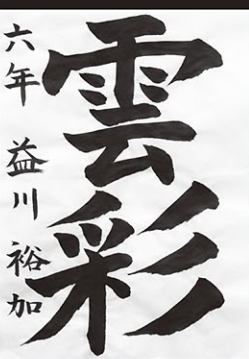 雲彩
六年 益川 裕加